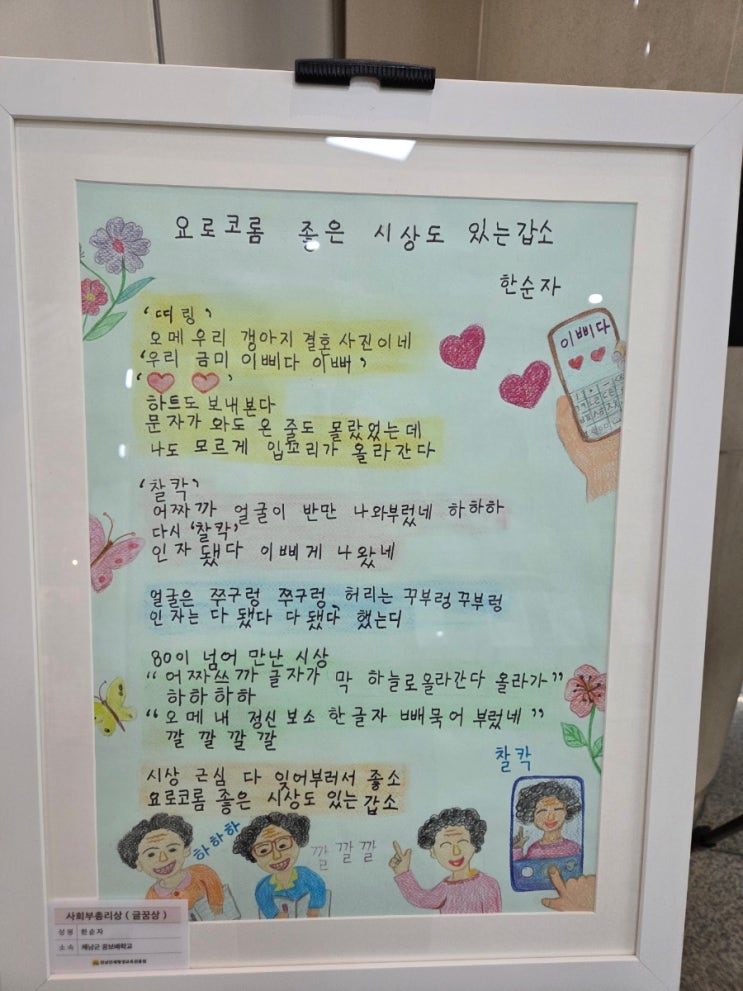 요로코롬 좋은 시상도 있는갑소
한순자
‘띠링’
오메 우리 갱아지 결혼사진이네
‘우리 금미 이삐다 이뻐’
‘♥ ♥’
하트도 보내본다
문자가 와도 온 줄도 몰랐었는데
나도 모르게 입꼬리가 올라간다
이삐다
‘찰칵’
어짜까 얼굴이 반만 나와부렀네 하하하
다시 ‘찰칵’
인자 됐다 이삐게 나왔네
얼굴은 쭈구렁 쭈구렁, 허리는 꾸부렁 꾸부렁
인자는 다 됐다 다 됐다 했는디
80이 넘어 만난 시상
“어짜쓰까 글자가 막 하늘로 올라간다 올라가”
하하하하
“오메 내 정신 보소 한글자 빼묵어 부렀네”
깔 깔 깔 깔
시상 근심 다 잊어부러서 좋소
요로코롬 좋은 시상도 있는갑소
찰칵
하하하
깔깔깔
사회부총리상 ( 글꿈상 )
성명 한순자
소속 해남군 꿈보배학교